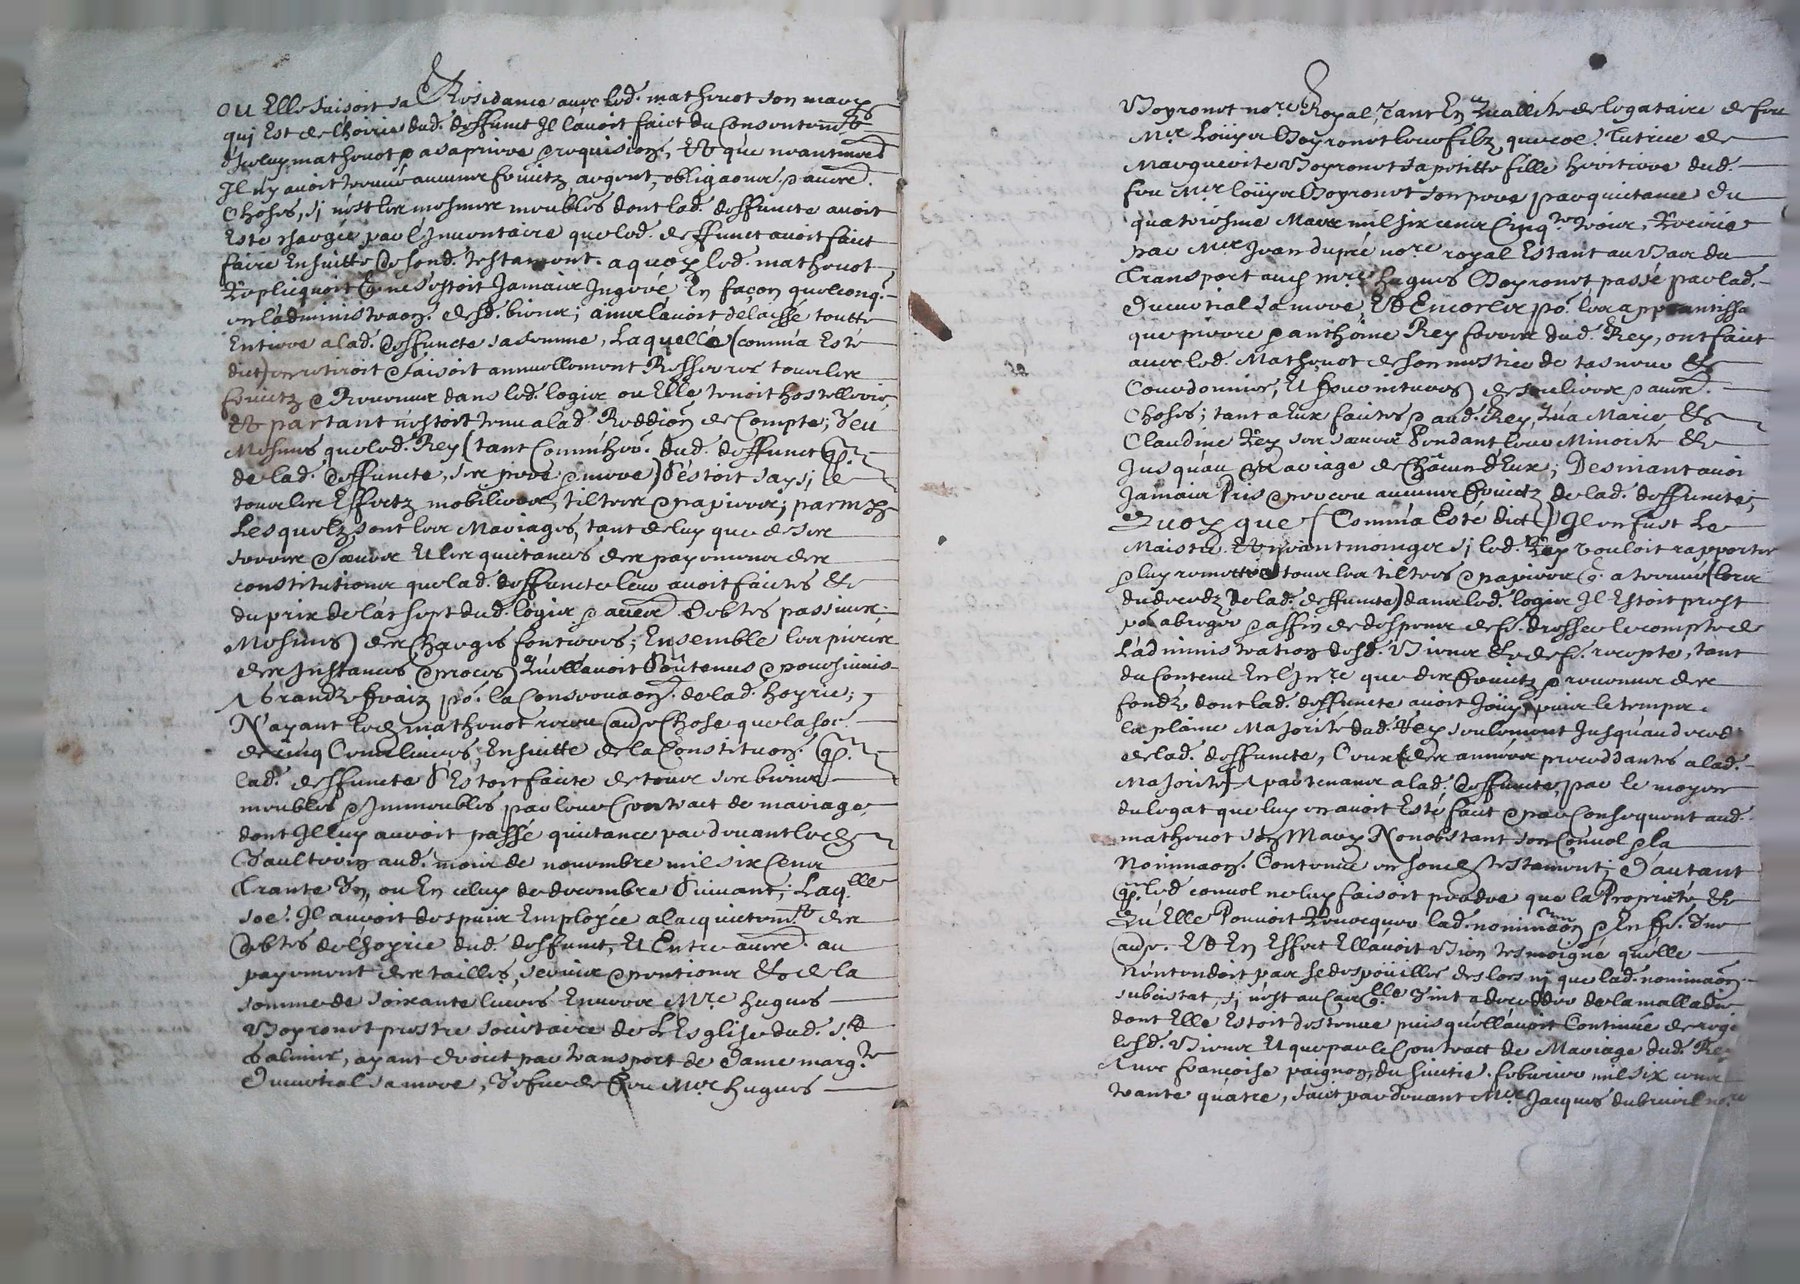 ou Elle faisoit sa Residance avec led. mathevot son mary
qui Est de l'hoirie dud. deffunct Il l'avoit faict du Consentemt
d'Iceluy mathevot & a sa priere & requision, Et que neantmoens
Il n'y avoit trouvé aucuns fruictz, argent, obligaons. & autres
Choses, si n'est les mesmes meubles dont lad. deffuncte avoit
Esté chargée par l'Inventaire que led. deffunct avoit faict
faire Ensuitte de sond. testament. a quoy led. mathevot
Replicquoit qu'il ne s'estoit Jamais Ingeré En façon quelconq.
en l'administraon. desd. biens; ains l'avoit delaissé toutte
Entiere a lad. deffuncte sa femme, Laquelle (comm'a Esté
dict) en retiroit & faisoit annuellement Resserrer tous les
fruictz & Revenus dans led. logis ou Elle tenoit hostellerie,
Et partant n'estoit tenu a lad. Reddion de Compte; Veu
Mesmes que led. Rey (tant Comm'her. dud. deffunct que
de lad. deffuncte, ses pere & mere) s'estoit saysi de
tous les Effectz mobiliers, tiltres & papiers; parmy
Lesquelz sont les Mariages, tant de luy que de ses
freres & sœurs Et les quitances des payemens des
constitutions que lad. deffuncte leur avoit faictes Et
du prix de l'achept dud. logis & autres debtes passives;
Mesmes des Charges foncieres; Ensemble les pieces
des Instances & proces Qu'ell'avoit Soutenus & poursuivis
A Grandz fraiz po. la Conservaon. de lad. hoyrie;
N'ayant led. mathevot receu au. Chose que la soe.
de cinq Cens livres, Ensuitte de la Constituon. que
lad. deffuncte S'Estoit faicte de tous ses biens
meubles & Immeubles par leur Contract de mariage,
dont Il luy auroit passé quitance par devant led.
Saultvein aud. mois de novembre mil six Cens
Trante Un, ou En celuy de decembre Suivant; Laqlle
soe. Il auroit despuis Employée a l'acquictemt des
debtes de l'hoyrie dud. deffunct, Et Entre autres au
payement des tailles, servis & pentions Et de la
somme de soixante livres Envers Mre hugues
Veyronet prestre societaire de L'Esglise dud. St
Galmier, ayant droict par transport de dame margte
Ducurtial sa mere, Vefve de feu Mre hugues
Veyronet nore Royal, Tant En Quallité de legataire de feu
Mre Loüys Veyronet leur filz, que coe. tutrice de
Marguerite Veyronet sa petitte fille heritiere dud.
feu Mre loüys Veyronet son pere, par quitance du
quatriesme Mars mil six cens Cinq. trois, Receüe
par Mre Jean dupré nore royal Estant au bas du
Transport aud. Mre hugues Veyronet passé par lad.
Ducurtial sa mere, Et Encor les po. les apprantissa
que pierre & anthoine Rey freres dud. Rey, ont faict
avec led. Mathevot de son mestier de tasneur Et
Courdonnier, Et fournitures de souliers & autres
Choses; tant a Eux faictes & aud. Rey, Qu'a Marie Et
Claudine Rey ses sœurs Pendant leur Minorité Et
Jusqu'au Mariage de Châcun d'Eux; Desniant avoir
Jamais Pris & perceu aucuns fruictz de lad. deffuncte;
Quoy que (Comm'a Esté dict) Il en fust Le
Maistre Et neantmoings si led. Rey vouloit rapporter
& luy remettre tous les tiltres & papiers q. a trouvé (lors
du decedz de lad. deffuncte) dans led. logis Il Estoit prest
po. abreger & affin de despens de fe. dresser le compte de
L'administration desd. Biens Et de fe. recepte, tant
du Contenu En l'Inre que des fruictz & revenus des
fondz dont lad. deffuncte avoit Joüy, puis le temps
la plaine Majorité dud. Rey seulement Jusqu'au deced
de lad. deffuncte, Ceux des années precedantes a lad.
Majorité apartenans a lad. deffuncte, par le moyen
du legat que luy en avoit Esté faict & par Consequent aud.
mathevot son Mary Nonobstant son Convol & la
Nominaon. Contenue en sond. testament; D'autant
que led. convol ne luy faisoit perdre que la Proprieté, Et
Qu'Elle Pouvoit Revocquer lad. nominaon & En fe. Une
au. Et En Effect Ell'avoit bien tesmoigné qu'elle
n'entendoit pas se despoüiller des lors ni que lad. nominaon
subcistat, si n'est au cas qlle Vint a deceder de la malladie
dont Elle Estoit destenue puis qu'ell'avoit Continué de regir
lesd. Biens Et que par le Contract de Mariage dud. Rey
avec françoise paignon, du huictie. febvrier mil six cens
trante quatre, faict par devant Mre Jacques dubrueil nore